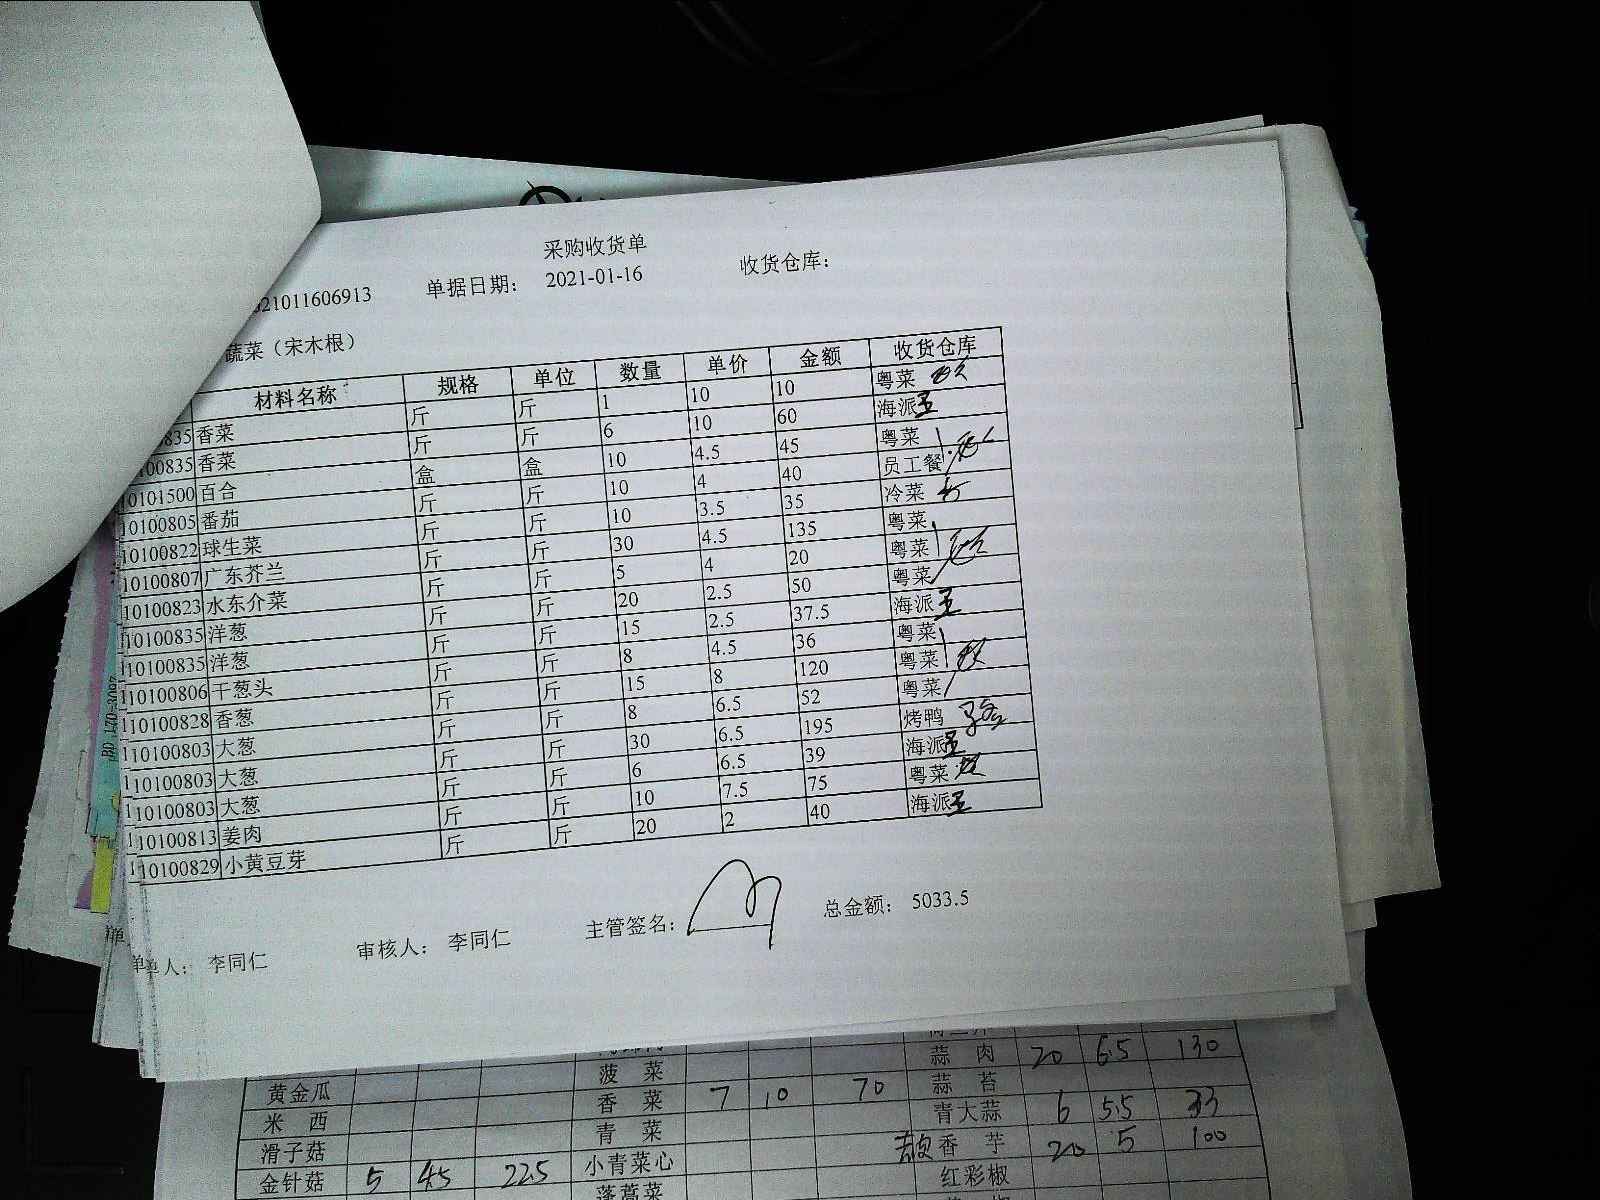 采购收货单
21011606913 单据日期： 2021-01-16 收货仓库：
蔬菜（宋木根）
材料名称 规格 单位 数量 单价 金额 收货仓库
835 香菜 斤 斤 1 10 10 粤菜
100835 香菜 斤 斤 6 10 60 海派 王
10101500 百合 盒 盒 10 4.5 45 粤菜
10100805 番茄 斤 斤 10 4 40 员工餐
10100822 球生菜 斤 斤 10 3.5 35 冷菜
10100807 广东芥兰 斤 斤 30 4.5 135 粤菜
10100823 水东介菜 斤 斤 5 4 20 粤菜
10100835 洋葱 斤 斤 20 2.5 50 粤菜
10100835 洋葱 斤 斤 15 2.5 37.5 海派 王
10100806 干葱头 斤 斤 8 4.5 36 粤菜
10100828 香葱 斤 斤 15 8 120 粤菜
10100803 大葱 斤 斤 8 6.5 52 粤菜
10100803 大葱 斤 斤 30 6.5 195 烤鸭
10100803 大葱 斤 斤 6 6.5 39 海派 王
10100813 姜肉 斤 斤 10 7.5 75 粤菜
10100829 小黄豆芽 斤 斤 20 2 40 海派 王
单人： 李同仁 审核人： 李同仁 主管签名： 总金额： 5033.5
蒜 肉 20 6.5 130
黄金瓜 菠 菜 蒜 苔
米 西 香 菜 7 10 70 青大蒜 6 5.5 33
滑子菇 青 菜 香 芋 20 5 100
金针菇 5 4.5 22.5 小青菜心 红彩椒
蓬蒿菜